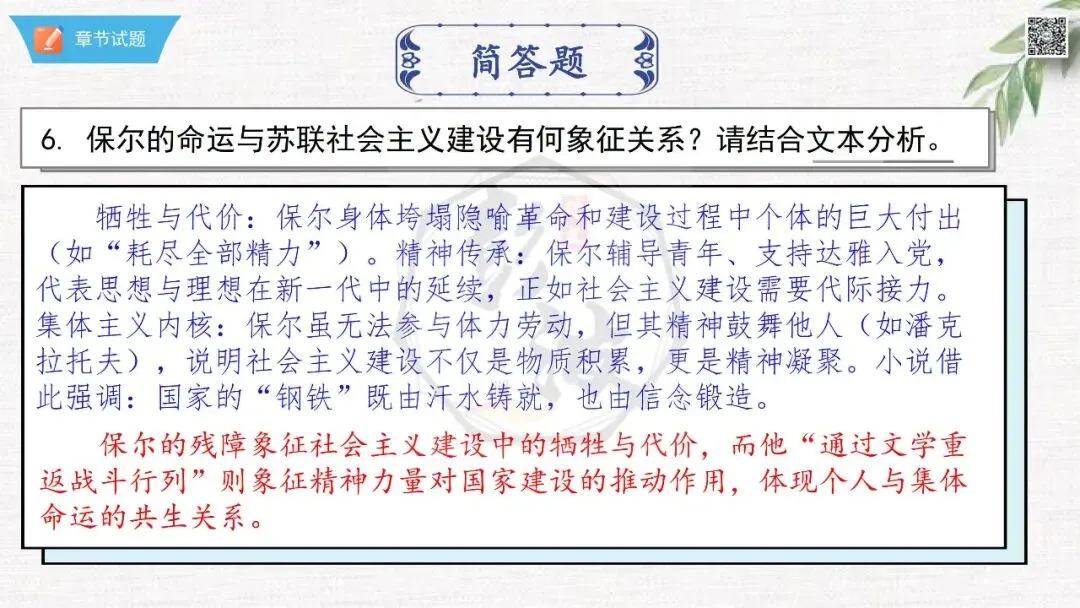 章节试题
简答题
6. 保尔的命运与苏联社会主义建设有何象征关系？请结合文本分析。
牺牲与代价：保尔身体垮塌隐喻革命和建设过程中个体的巨大付出
（如“耗尽全部精力”）。精神传承：保尔辅导青年、支持达雅入党，
代表思想与理想在新一代中的延续，正如社会主义建设需要代际接力。
集体主义内核：保尔虽无法参与体力劳动，但其精神鼓舞他人（如潘克
拉托夫），说明社会主义建设不仅是物质积累，更是精神凝聚。小说借
此强调：国家的“钢铁”既由汗水铸就，也由信念锻造。
保尔的残障象征社会主义建设中的牺牲与代价，而他“通过文学重
返战斗行列”则象征精神力量对国家建设的推动作用，体现个人与集体
命运的共生关系。